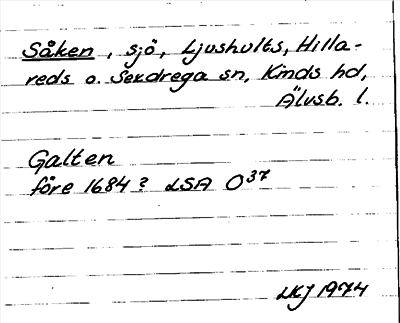 Såken, sjö, Ljushults, Hilla-
reds o. Sexdrega sn, Kinds hd,
Älvsb. l.
Galten
före 1684? LSA O37
LKJ 1974